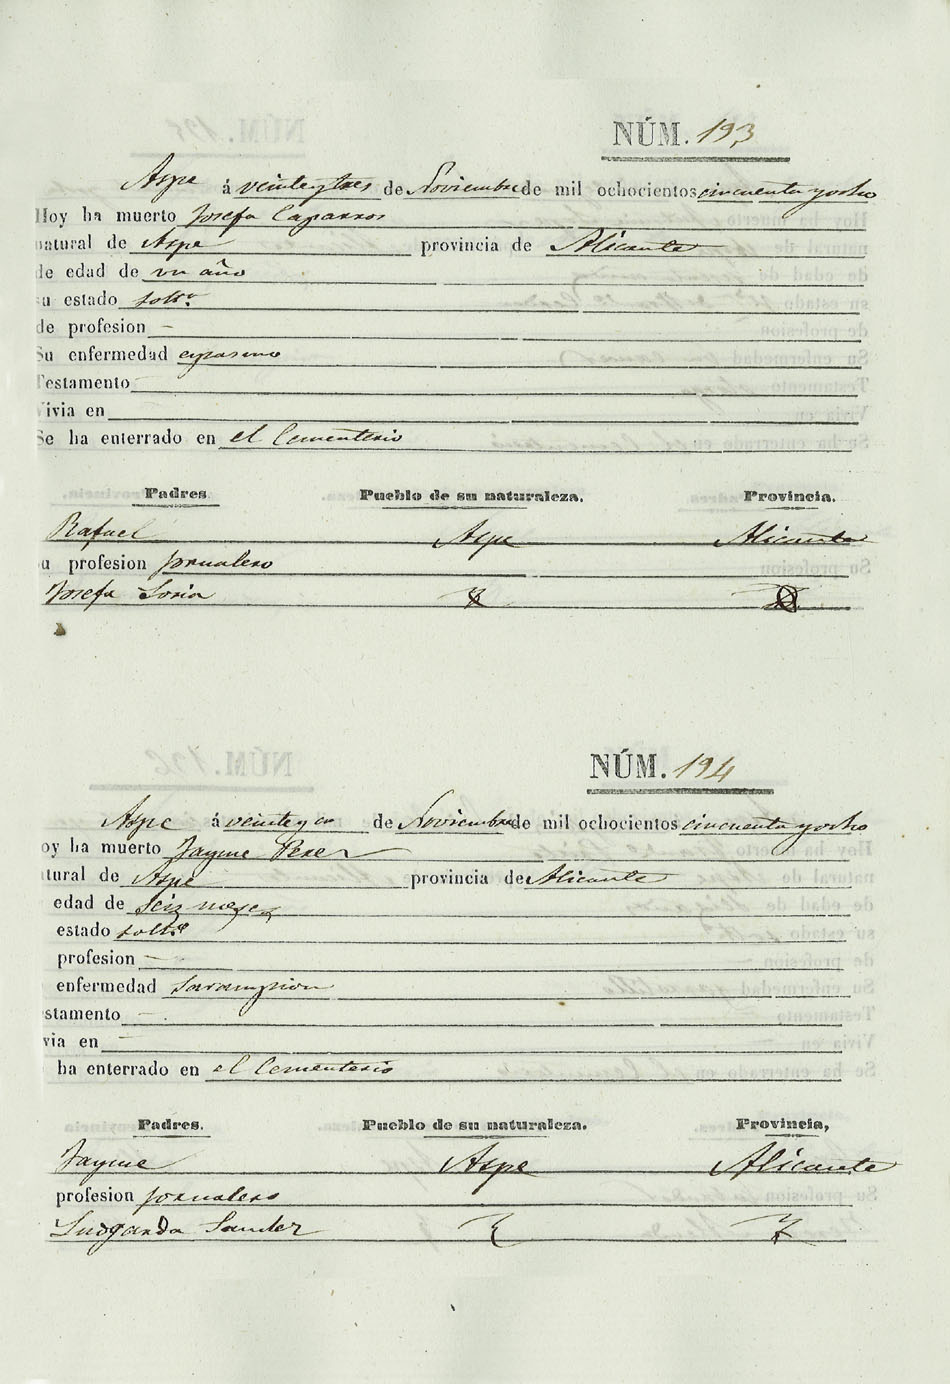 NÚM. 193
Aspe á veinteytres de Noviembre de mil ochocientos cincuenta yocho
Hoy ha muerto Josefa Caparros
natural de Aspe provincia de Alicante
de edad de un año
su estado soltª
de profesion —
Su enfermedad espasmo
Testamento —
Vivia en
Se ha enterrado en el Cementerio
Padres. Pueblo de su naturaleza. Provincia.
Rafael Aspe Alicante
u profesion jornalero
Josefa Soria
NÚM. 194
Aspe á veinte y de Noviembre de mil ochocientos cincuenta yocho
oy ha muerto Jayme Perez
tural de Aspe provincia de Alicante
edad de seis meses
estado solt.º
profesion —
enfermedad Sarampion
stamento —
via en —
ha enterrado en el Cementerio
Padres. Pueblo de su naturaleza. Provincia,
Jayme Aspe Alicante
profesion jornalero